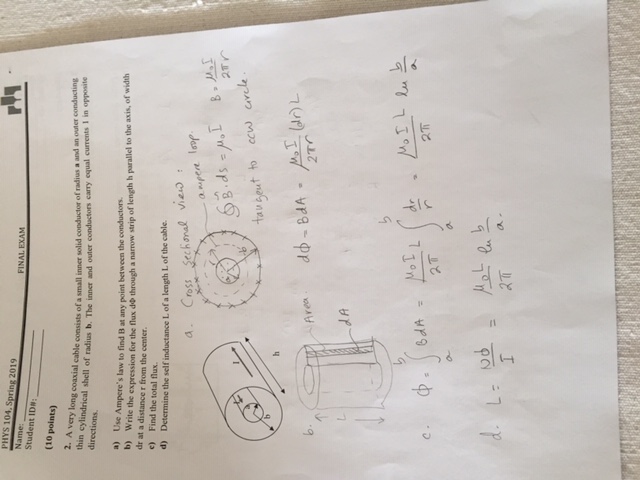 PHYS 104, Spring 2019
FINAL EXAM
Name:
Student ID#:
(10 points)
2. A very long coaxial cable consists of a small inner solid conductor of radius a and an outer conducting
thin cylindrical shell of radius b. The inner and outer conductors carry equal currents I in opposite
directions.
a) Use Ampere's law to find B at any point between the conductors.
b) Write the expression for the flux dΦ through a narrow strip of length h parallel to the axis, of width
dr at a distance r from the center.
c) Find the total flux.
d) Determine the self inductance L of a length L of the cable.
a. Cross Sectional view:
ampere loop.
a
r
b
∮ B⃗·ds = μ₀I B = μ₀I/2πr
tangent to ccw circle.
I
I
a
b
h
b.
L
Area
dA
dΦ = BdA = μ₀I/2πr (dr) L
c. Φ = ∫ₐᵇ BdA = μ₀I/2π L ∫ₐᵇ dr/r = μ₀I L/2π ln b/a
d. L = NΦ/I = μ₀L/2π ln b/a.